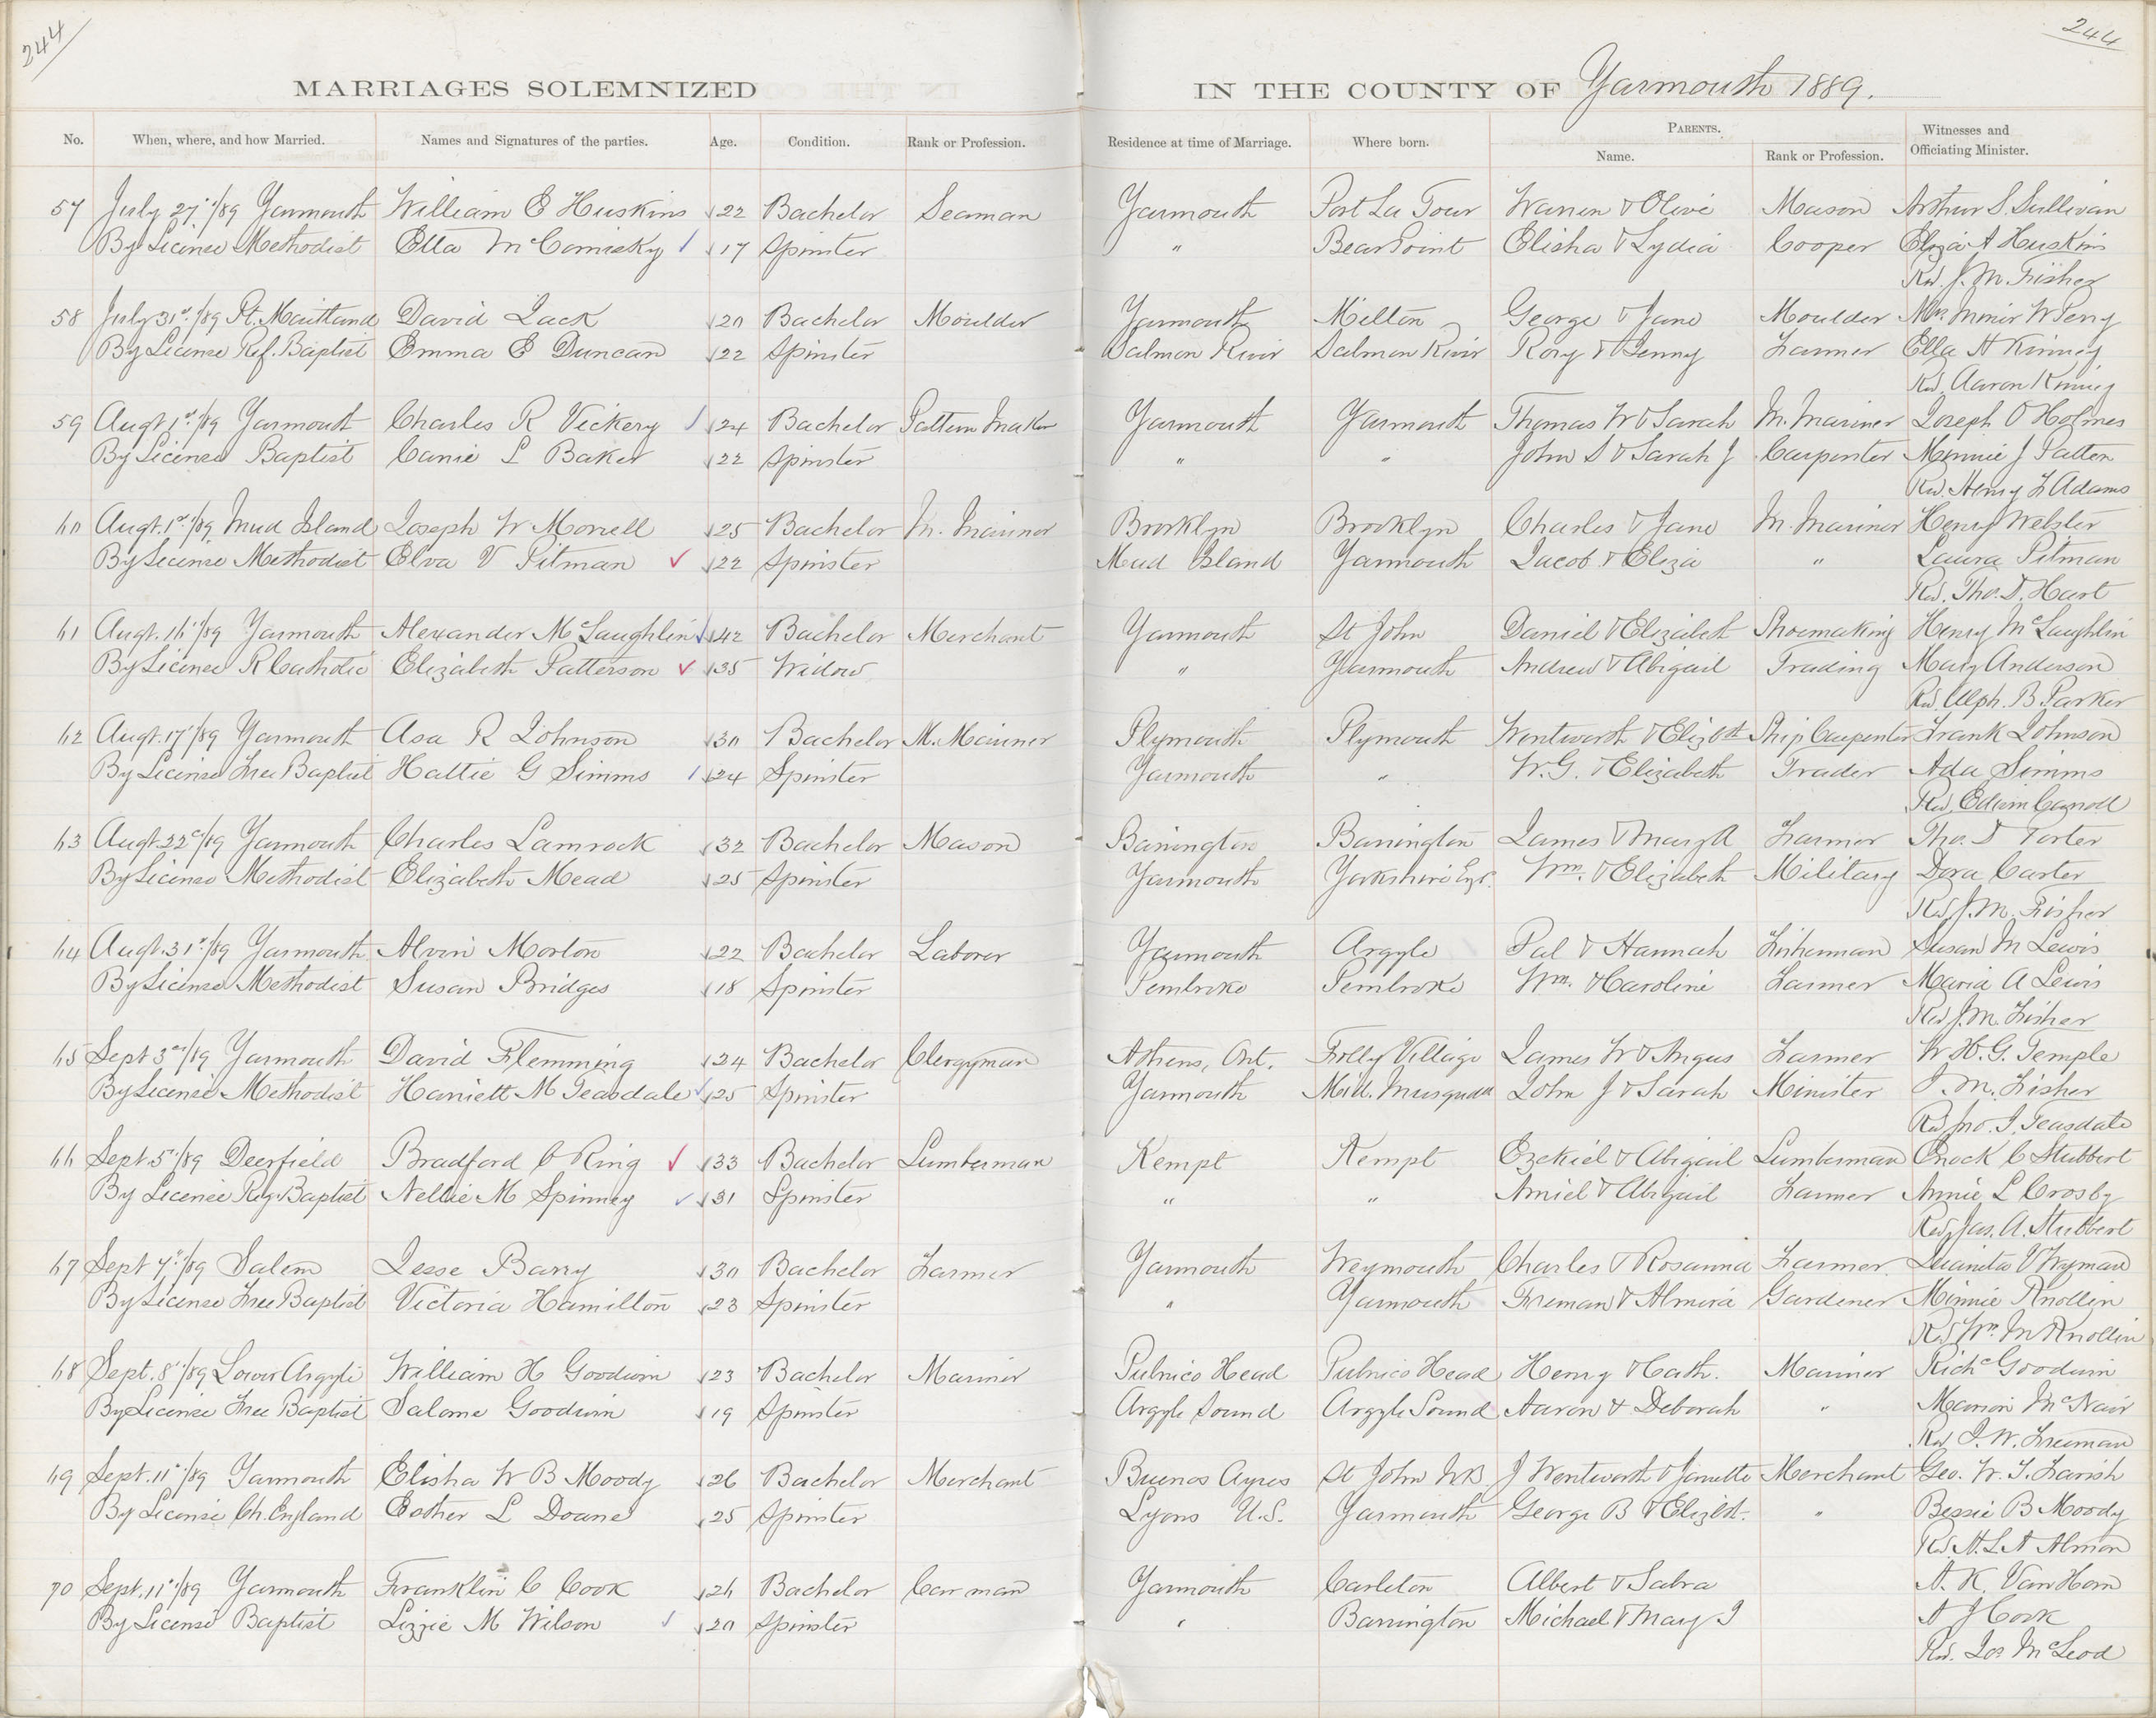 244
244
MARRIAGES SOLEMNIZED IN THE COUNTY OF Yarmouth 1889.
No. When, where, and how Married. Names and Signatures of the parties. Age. Condition. Rank or Profession. Residence at time of Marriage. Where born. PARENTS. Name. Rank or Profession. Witnesses and Officiating Minister.
57 July 27th/89 Yarmouth William E Huskins 22 Bachelor Seaman Yarmouth Port La Tour Warren & Olive Mason Arthur S. Sullivan
By License Methodist Ella McComisky 17 Spinster " Bear Point Elisha & Lydia Cooper Eliza A Huskins
Rev. J. M. Fisher
58 July 31st/89 Pt. Maitland David Jack 20 Bachelor Moulder Yarmouth Milton George & Jane Moulder Mrs Minir W Perry
By License Ref. Baptist Emma E Duncan 22 Spinster Salmon River Salmon River Rory & Jenny Farmer Ella H Kinney
Rev. Aaron Kinney
59 Augt 1st/89 Yarmouth Charles R Vickery 24 Bachelor Pattern Maker Yarmouth Yarmouth Thomas W & Sarah M. Mariner Joseph O Holmes
By License Baptist Canie L Baker 22 Spinster " " John S & Sarah J Carpenter Minnie J Patten
Rev. Henry F Adams
60 Augt. 1st/89 Mud Island Joseph W Morrell 25 Bachelor M. Mariner Brooklyn Brooklyn Charles & Jane M. Mariner Henry Webster
By License Methodist Elva V Pitman 22 Spinster Mud Island Yarmouth Jacob & Eliza " Laura Pitman
Rev. Tho. D. Hart
61 Augt. 16th/89 Yarmouth Alexander McLaughlin 42 Bachelor Merchant Yarmouth St John Daniel & Elizabeth Shoemaking Henry McLaughlin
By License R Catholic Elizabeth Patterson 35 Widow " Yarmouth Andrew & Abigail Trading Mary Anderson
Rev. Alph. B. Parker
62 Augt. 17th/89 Yarmouth Asa R Johnson 30 Bachelor M. Mariner Plymouth Plymouth Wentworth & Elizbth Ship Carpenter Frank Johnson
By License Free Baptist Hattie G Simms 24 Spinster Yarmouth " W. G. & Elizabeth Trader Ada Simms
Rev Edwin Carroll
63 Augt. 22d/89 Yarmouth Charles Lamrock 32 Bachelor Mason Barrington Barrington James & Mary A Farmer Tho. D Porter
By License Methodist Elizabeth Mead 25 Spinster Yarmouth Yorkshire Eng. Wm. & Elizabeth Military Dora Carter
Rev J. M. Fisher
64 Augt. 31st/89 Yarmouth Alvin Morton 22 Bachelor Laborer Yarmouth Argyle Pal & Hannah Fisherman Susan M Lewis
By License Methodist Susan Bridges 18 Spinster Pembroke Pembroke Wm. & Caroline Farmer Maria A Lewis
Rev J. M. Fisher
65 Sept 3rd/89 Yarmouth David Flemming 24 Bachelor Clergyman Athens, Ont. Folly Village James W & Angus Farmer W H. G. Temple
By License Methodist Harriett M Teasdale 25 Spinster Yarmouth Mid. Musquodt John J & Sarah Minister J. M. Fisher
Rev Jno. J. Teasdale
66 Sept. 5th/89 Deerfield Bradford C Ring 33 Bachelor Lumberman Kempt Kempt Ezekiel & Abigail Lumberman Enock C Stubbert
By License Reg. Baptist Nellie M Spinney 31 Spinster " " Amiel & Abigail Farmer Annie L Crosby
Rev Jas. A. Stubbert
67 Sept 7th/89 Salem Jesse Barry 30 Bachelor Farmer Yarmouth Weymouth Charles & Rosanna Farmer Juanita V Wyman
By License Free Baptist Victoria Hamilton 23 Spinster " Yarmouth Freman & Almira Gardener Minnie Knollin
Rev Wm. M Knollin
68 Sept. 8th/89 Lower Argyle William H Goodwin 23 Bachelor Mariner Pubnico Head Pubnico Head Henry & Cath. Mariner Richd Goodwin
By License Free Baptist Salome Goodwin 19 Spinster Argyle Sound Argyle Sound Aaron & Deborah " Marion McNair
Rev J. W. Freeman
69 Sept. 11th/89 Yarmouth Elisha W B Moody 26 Bachelor Merchant Buenos Ayres St John N.B. J Wentworth & Janette Merchant Geo. W. T. Farish
By License Ch. England Esther L Doane 25 Spinster Lyons U.S. Yarmouth George B & Elizbth. " Bessie B Moody
Rev H. L A Almon
70 Sept. 11th/89 Yarmouth Franklin C Cook 26 Bachelor Car man Yarmouth Carleton Albert & Sabra A. K. Van Horn
By License Baptist Lizzie M Wilson 20 Spinster " Barrington Michael & Mary J A J Cook
Rev. Jos McLeod